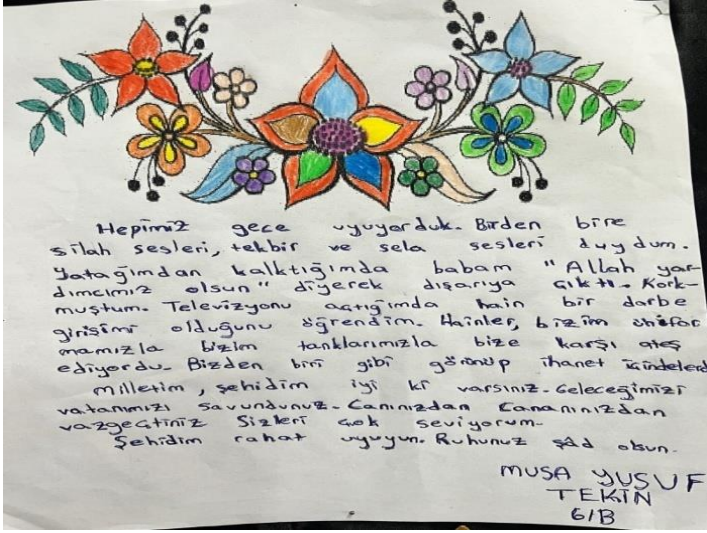 Hepimiz gece uyuyorduk. Birden bire
silah sesleri, tekbir ve sela sesleri duydum.
Yatağımdan kalktığımda babam "Allah yar-
dımcımız olsun" diyerek dışarıya çıktı. Kork-
muştum. Televizyonu açtığımda hain bir darbe
girişimi olduğunu öğrendim. Hainler, bizim ünifor
mamızla bizim tanklarımızla bize karşı ateş
ediyordu. Bizden biri gibi görünüp ihanet içindelerd
milletim, şehidim iyi ki varsınız. Geleceğimizi
vatanımızı savundunuz. Canınızdan Cananınızdan
vazgeçtiniz Sizleri çok seviyorum.
Şehidim rahat uyuyun. Ruhunuz şâd olsun.
MUSA YUSUF
TEKİN
6/B